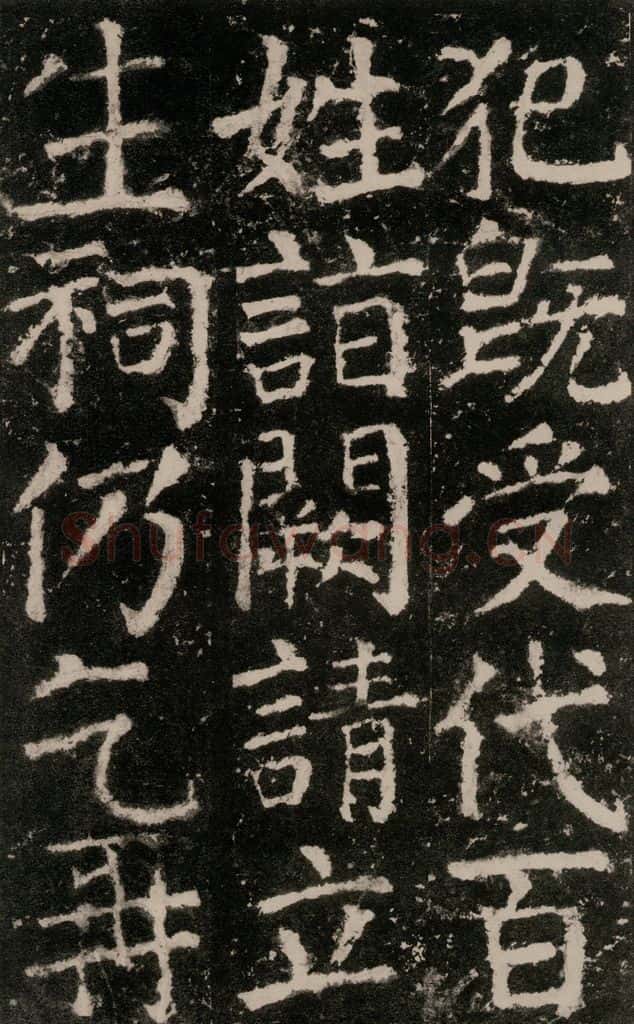 犯既受代百
姓詣闕請立
生祠仍乞再
Shufawang.CN